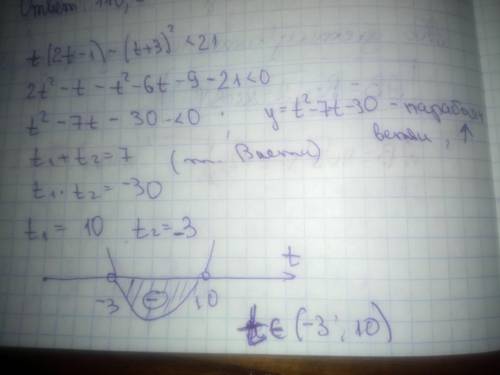 Ответ: 110,
t(2t-1) - (t+3)² < 21
2t² - t - t² - 6t - 9 - 21 < 0
t² - 7t - 30 < 0
y = t² - 7t - 30 - парабола
ветви, ↑
t₁ + t₂ = 7 (т. Виета)
t₁ · t₂ = -30
t₁ = 10 t₂ = -3
t
-3 - 10
t ∈ (-3; 10)